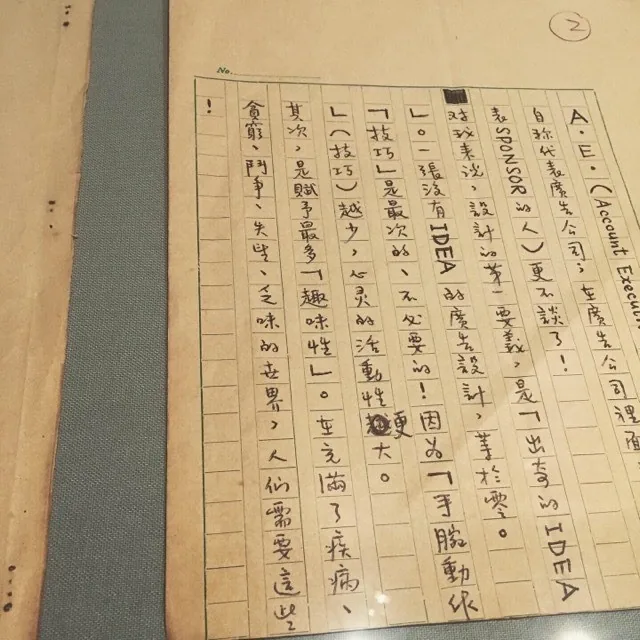 2
No.
A.E.（Account Execut
自称代表廣告公司；在廣告公司裡面
表SPONSOR的人）更不談了！
对我来说，設計的第一要義，是「出奇的IDEA
」。一張没有IDEA的廣告設計，等於零。
「技巧」是最次的、不必要的！因为「手腕動作
」（技巧）越少，心灵的活動性更大。
其次，是賦予最多「趣味性」。在充滿了疾病、
貪窮、鬥爭、失望、乏味的世界，人们需要這些
！